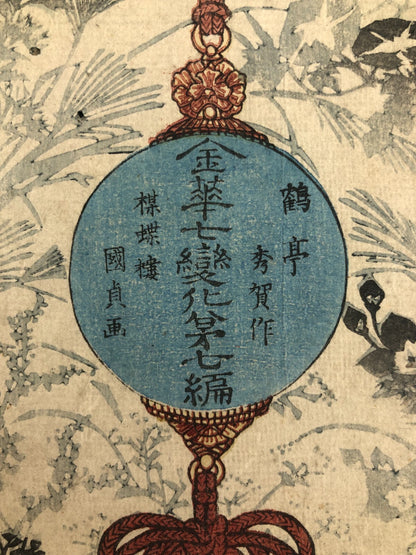 鶴亭
秀賀作
金華七變化第七編
楳蝶樓
國貞画